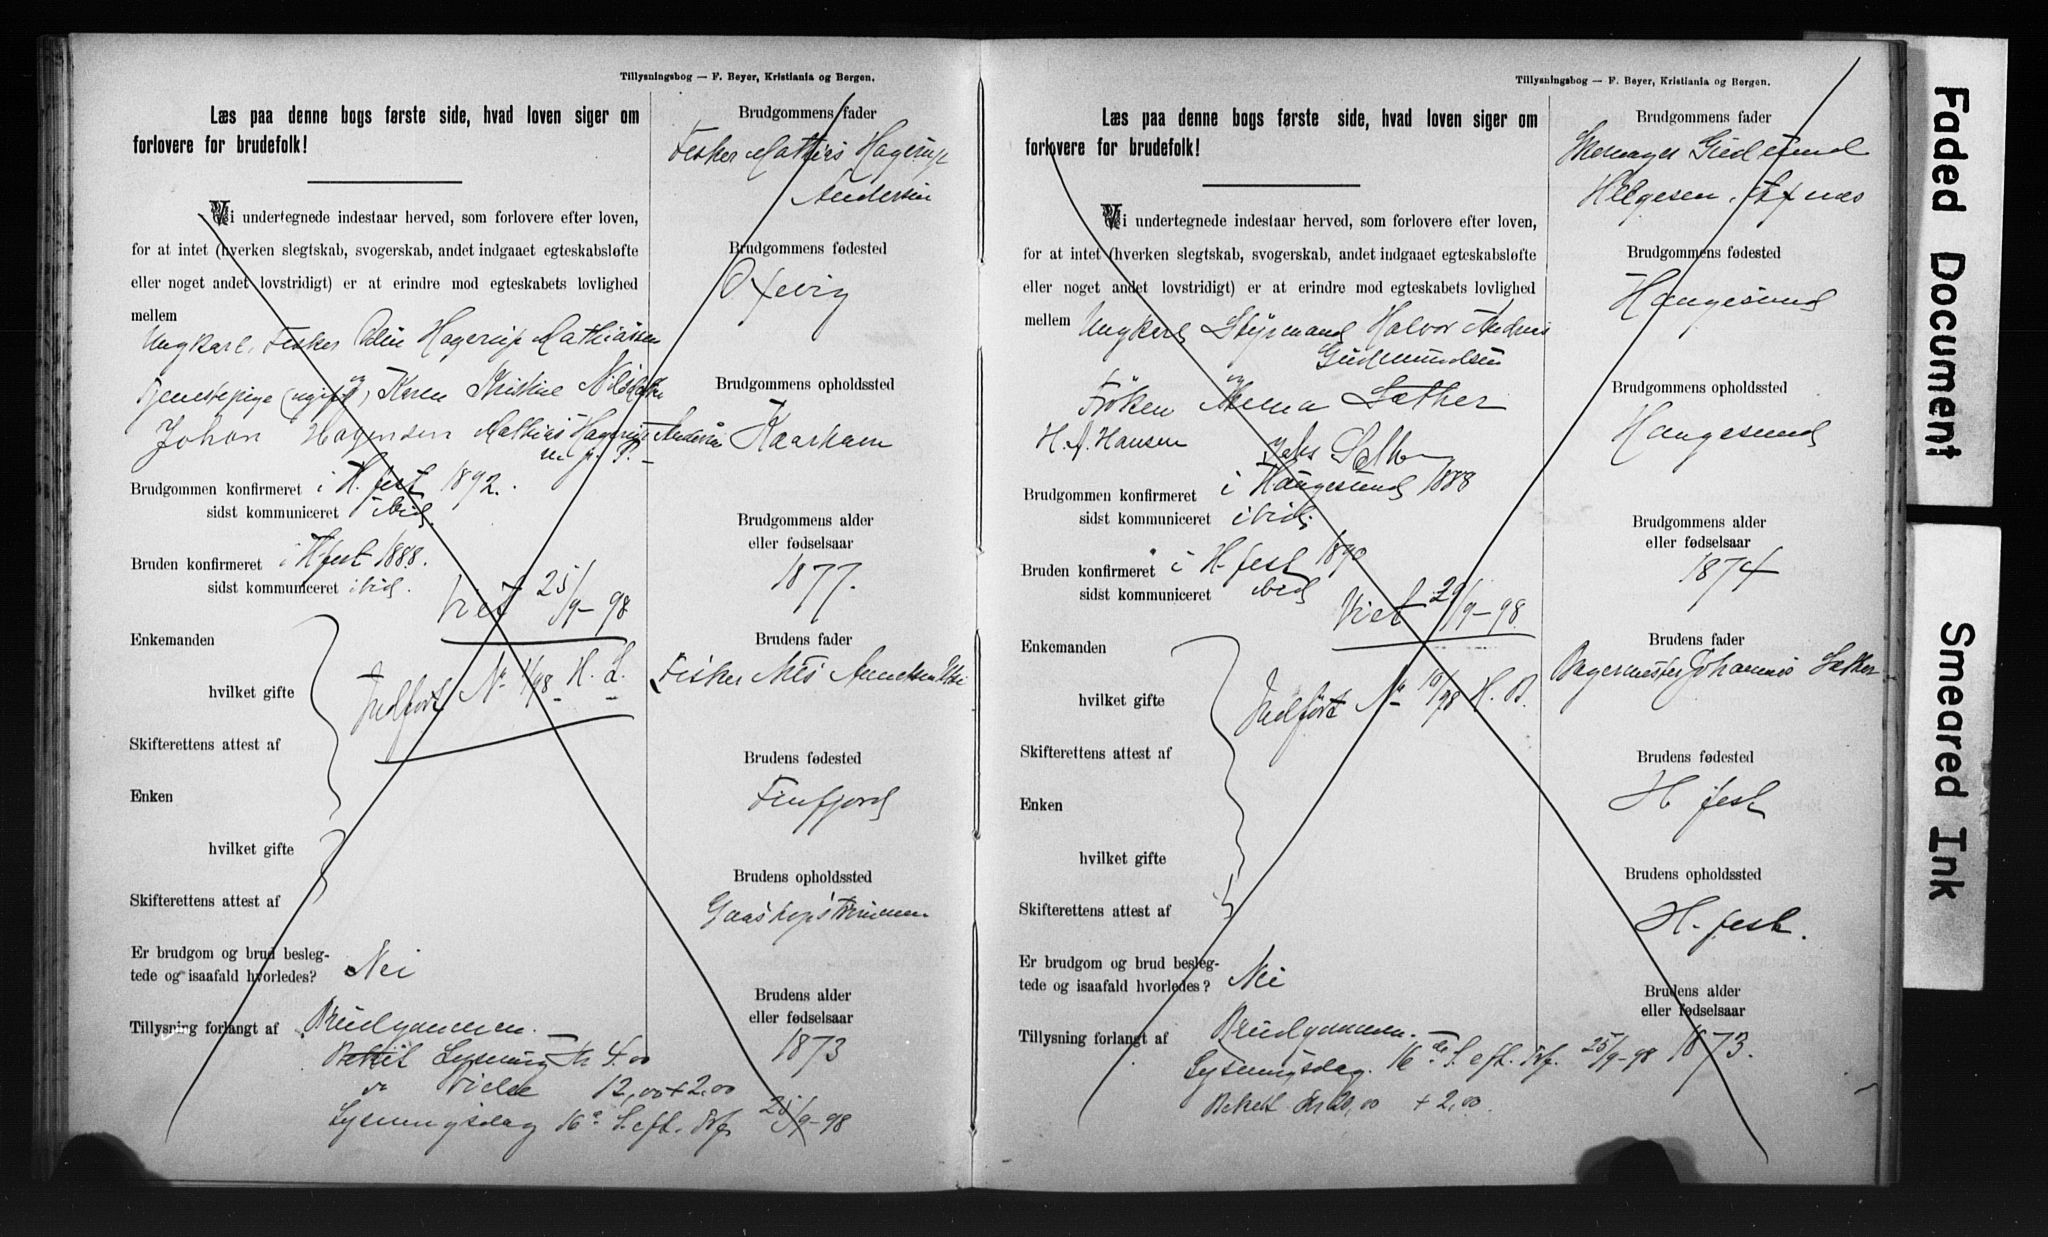 Tillysningsbog — F. Beyer, Kristiania og Bergen.
Læs paa denne bogs første side, hvad loven siger om
forlovere for brudefolk!
Vi undertegnede indestaar herved, som forlovere efter loven,
for at intet (hverken slegtskab, svogerskab, andet indgaaet egteskabsløfte
eller noget andet lovstridigt) er at erindre mod egteskabets lovlighed
mellem
Ungkarl, Fisker Odin Hagerup Mathiassen
og
Tjenestepige (ugift) Karen Kristine Nilsdatter
Johan Hagensen Mathias Hagerup Andersen
m. p. P.
Brudgommen konfirmeret i H.fest 1892.
sidst kommuniceret ibid.
Bruden konfirmeret i Hfest 1888.
sidst kommuniceret ibid.
Viet 25/9-98
Enkemanden
hvilket gifte
Indført No 1/98 H. L.
Skifterettens attest af
Enken
hvilket gifte
Skifterettens attest af
Er brudgom og brud besleg-
tede og isaafald hvorledes? Nei
Tillysning forlangt af Brudgommen.
Betalt Lysning Kr 4.00
" Vielse 12,00 + 2.00
Lysningsdag 16e S. eft. Trf 25/9-98
Brudgommens fader
Fisker Mathias Hagerup
Andersen
Brudgommens fødested
Oxevig
Brudgommens opholdssted
Kaarhavn
Brudgommens alder
eller fødselsaar
1877.
Brudens fader
Fisker Nils
Brudens fødested
Finfjord
Brudens opholdssted
Brudens alder
eller fødselsaar
1873
Tillysningsbog — F. Beyer, Kristiania og Bergen.
Læs paa denne bogs første side, hvad loven siger om
forlovere for brudefolk!
Vi undertegnede indestaar herved, som forlovere efter loven,
for at intet (hverken slegtskab, svogerskab, andet indgaaet egteskabsløfte
eller noget andet lovstridigt) er at erindre mod egteskabets lovlighed
mellem
Ungkarl Styrmand Halvor Andreas
Gudmundsen
og
Frøken Mema Sæther
H. A. Hansen Johs Sæther
Brudgommen konfirmeret i Haugesund 1888
sidst kommuniceret ibid.
Bruden konfirmeret i H.fest 1890
sidst kommuniceret ibid
Viet 29/9-98
Enkemanden
hvilket gifte
Indført No 10/98 H. B.
Skifterettens attest af
Enken
hvilket gifte
Skifterettens attest af
Er brudgom og brud besleg-
tede og isaafald hvorledes? Nei
Tillysning forlangt af Brudgommen.
Lysningsdag. 16de S. eft. Trf. 25/9-98
Betalt Kr 20,00 + 2,00.
Brudgommens fader
Skomager Gudmund
Helgesen,
Brudgommens fødested
Haugesund
Brudgommens opholdssted
Haugesund
Brudgommens alder
eller fødselsaar
1874
Brudens fader
Bagermester Johannes Sæther
Brudens fødested
H fest
Brudens opholdssted
H. fest.
Brudens alder
eller fødselsaar
1873.
Faded Document
Smeared Ink